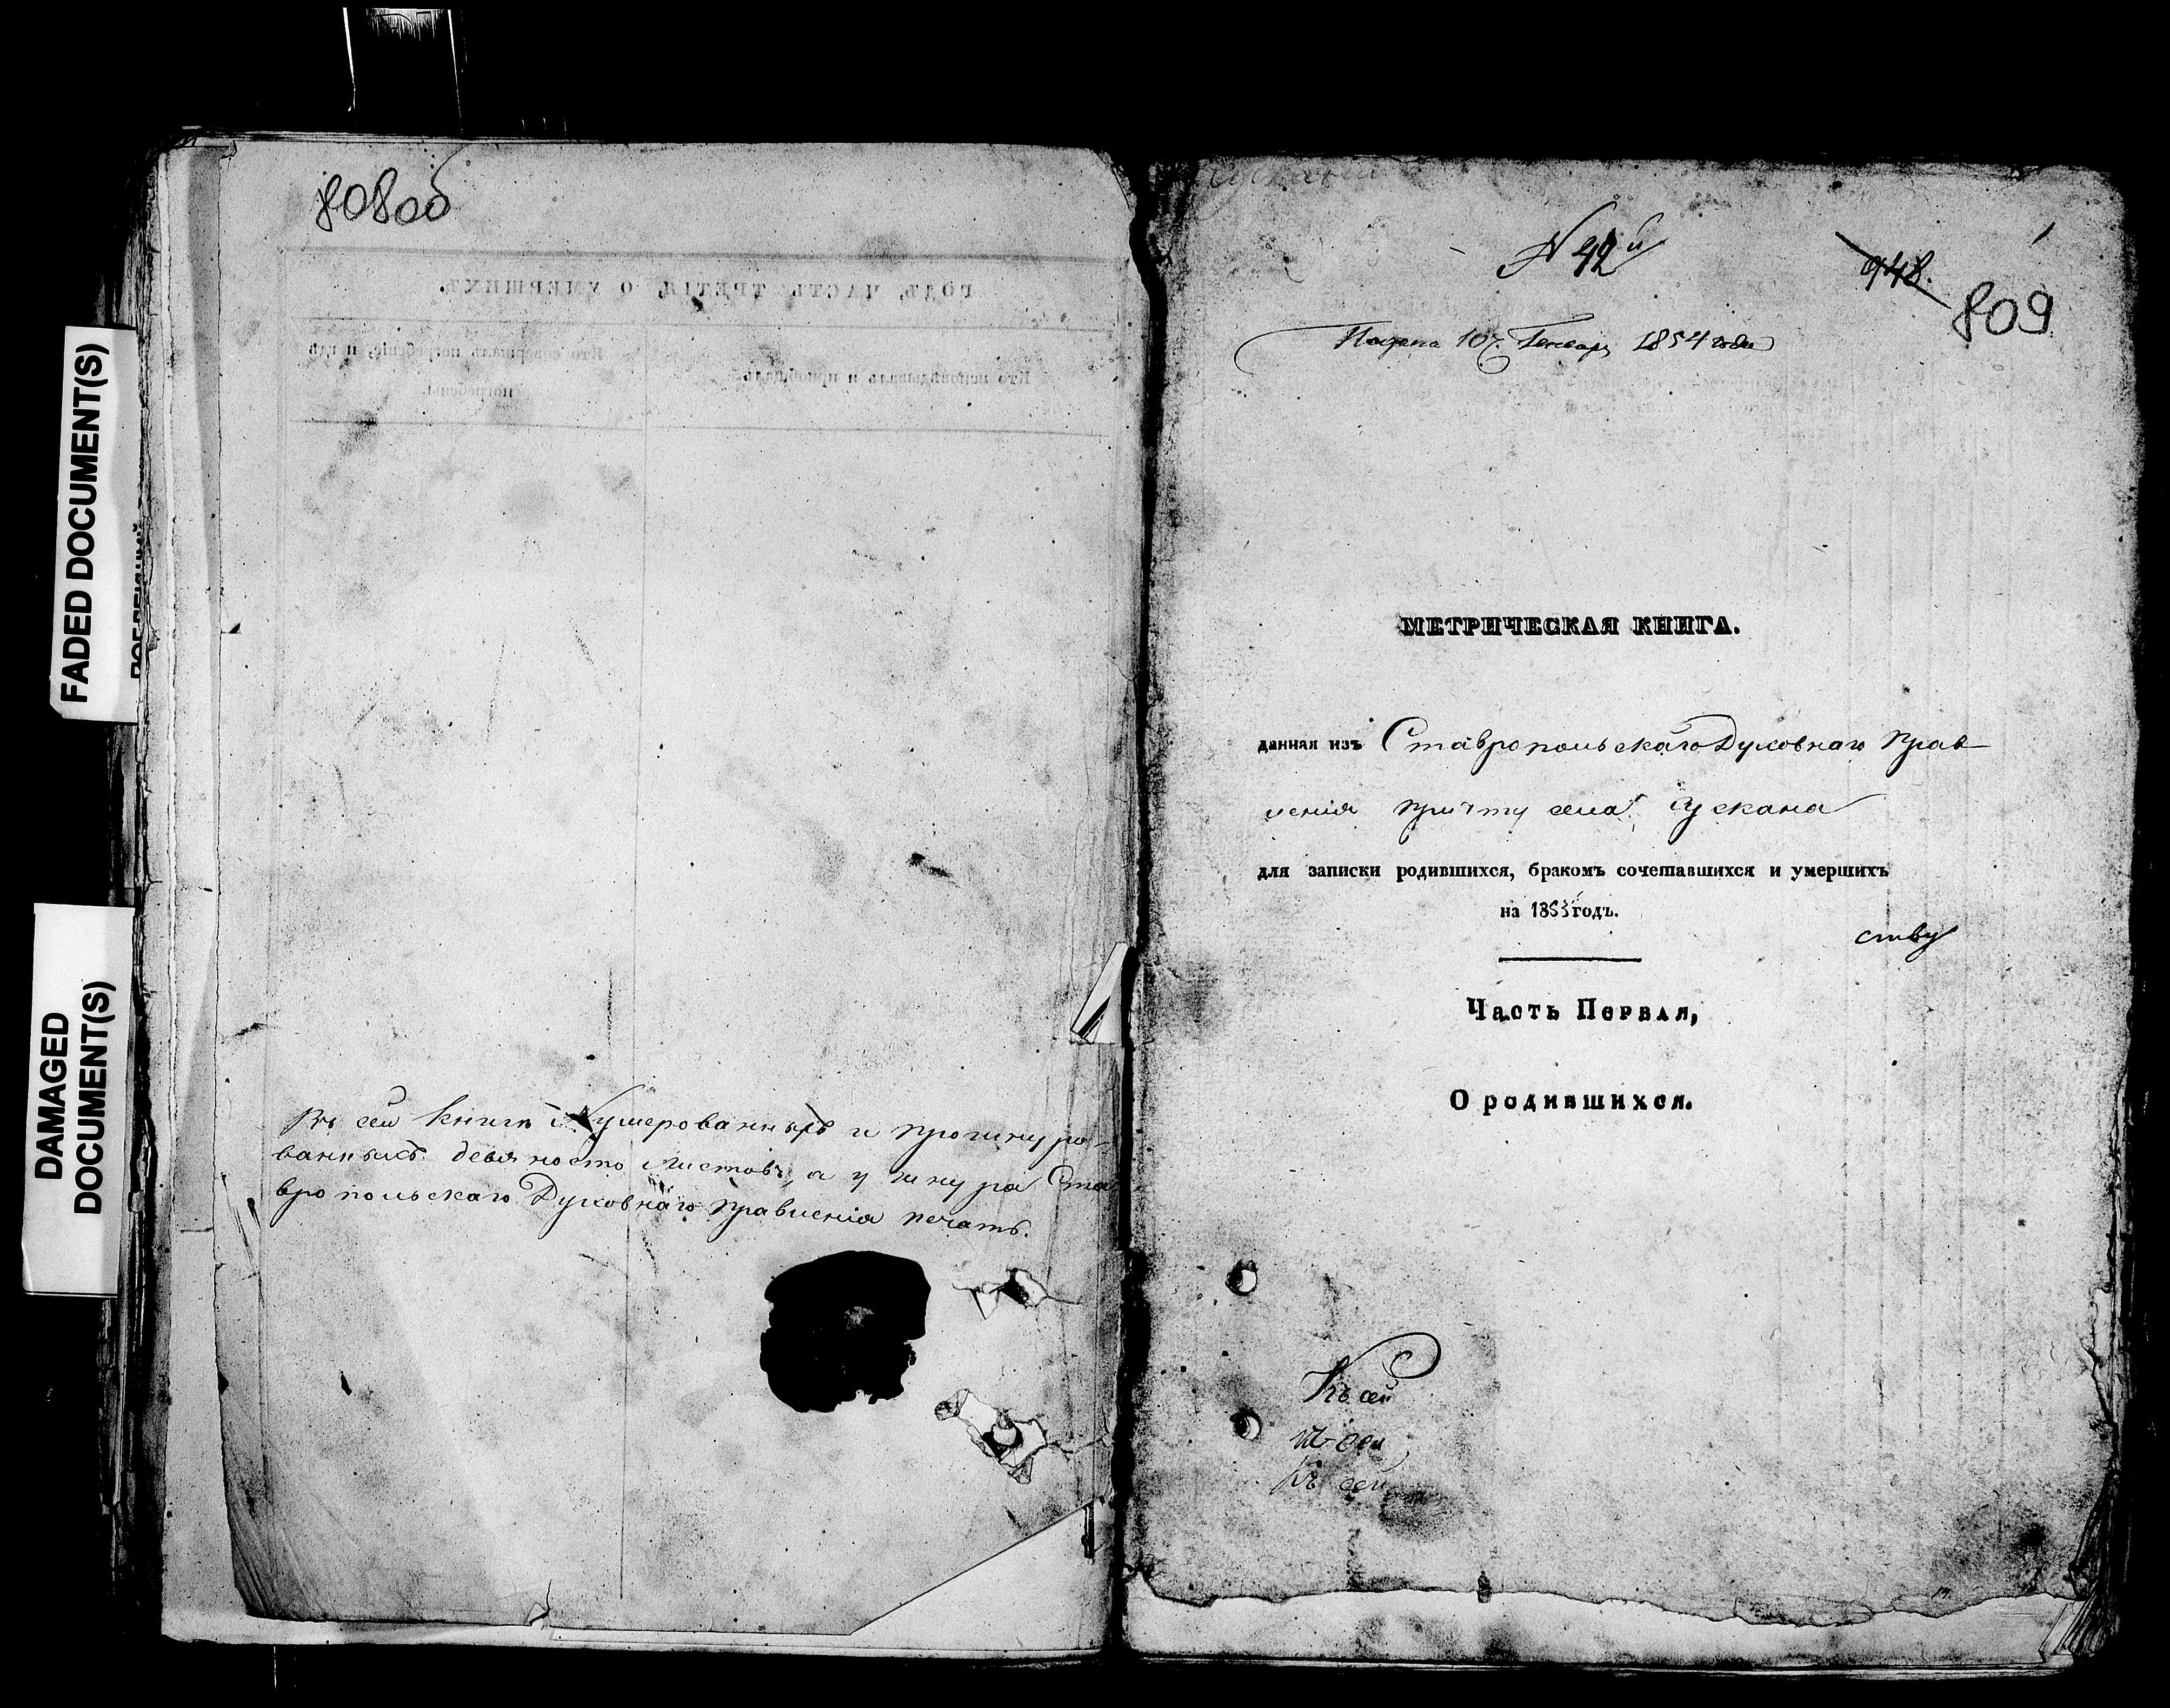 FADED DOCUMENT(S)
DAMAGED
DOCUMENT(S)
808об
ГОДЪ, ЧАСТЬ ТРЕТІЯ, О УМЕРШИХЪ.
Кто исповѣдывалъ и пріобщалъ.
Кто совершалъ погребеніе, и гдѣ
погребены.
Въ сей книгѣ Нумерованныхъ и прошнуро-
ванныхъ девяносто листовъ, а у шнура Ста
вропольскаго Духовнаго Правленія печать.
N 42й
948.
1
809
Подана 10. Генваря 1854 года
МЕТРИЧЕСКАЯ КНИГА.
данная изъ Ставропольскаго Духовнаго Прав
ленія причту села Сускана
для записки родившихся, бракомъ сочетавшихся и умершихъ
на 1853 годъ.
ству
Часть Первая,
О родившихся.
Къ сей
Къ сей